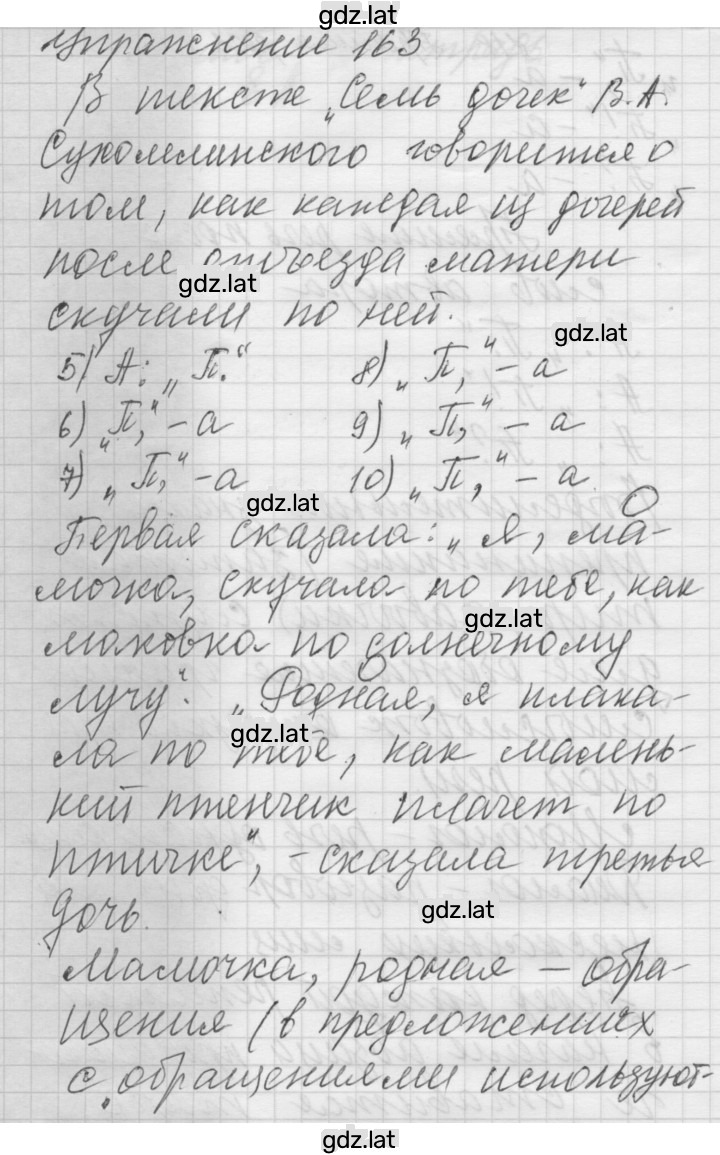 gdz.lat
Упражнение 163
В тексте „Семь дочек" В.А.
Сухомлинского говорится о
том, как каждая из дочерей
после отъезда матери
gdz.lat
скучали по ней.
gdz.lat
5) А: „П."
8) „П," – а
6) „П," – а
9) „П," – а
7) „П," – а
10) „П," – а
gdz.lat
Первая сказала: „Я, ма-
мочка, скучала по тебе, как
gdz.lat
маковка по солнечному
лучу". „Родная, я плака-
gdz.lat
ла по тебе, как малень-
кий птенчик плачет по
птичке", – сказала третья
дочь.
gdz.lat
Мамочка, родная – обра-
щения (в предложениях
с обращениями используют-
gdz.lat